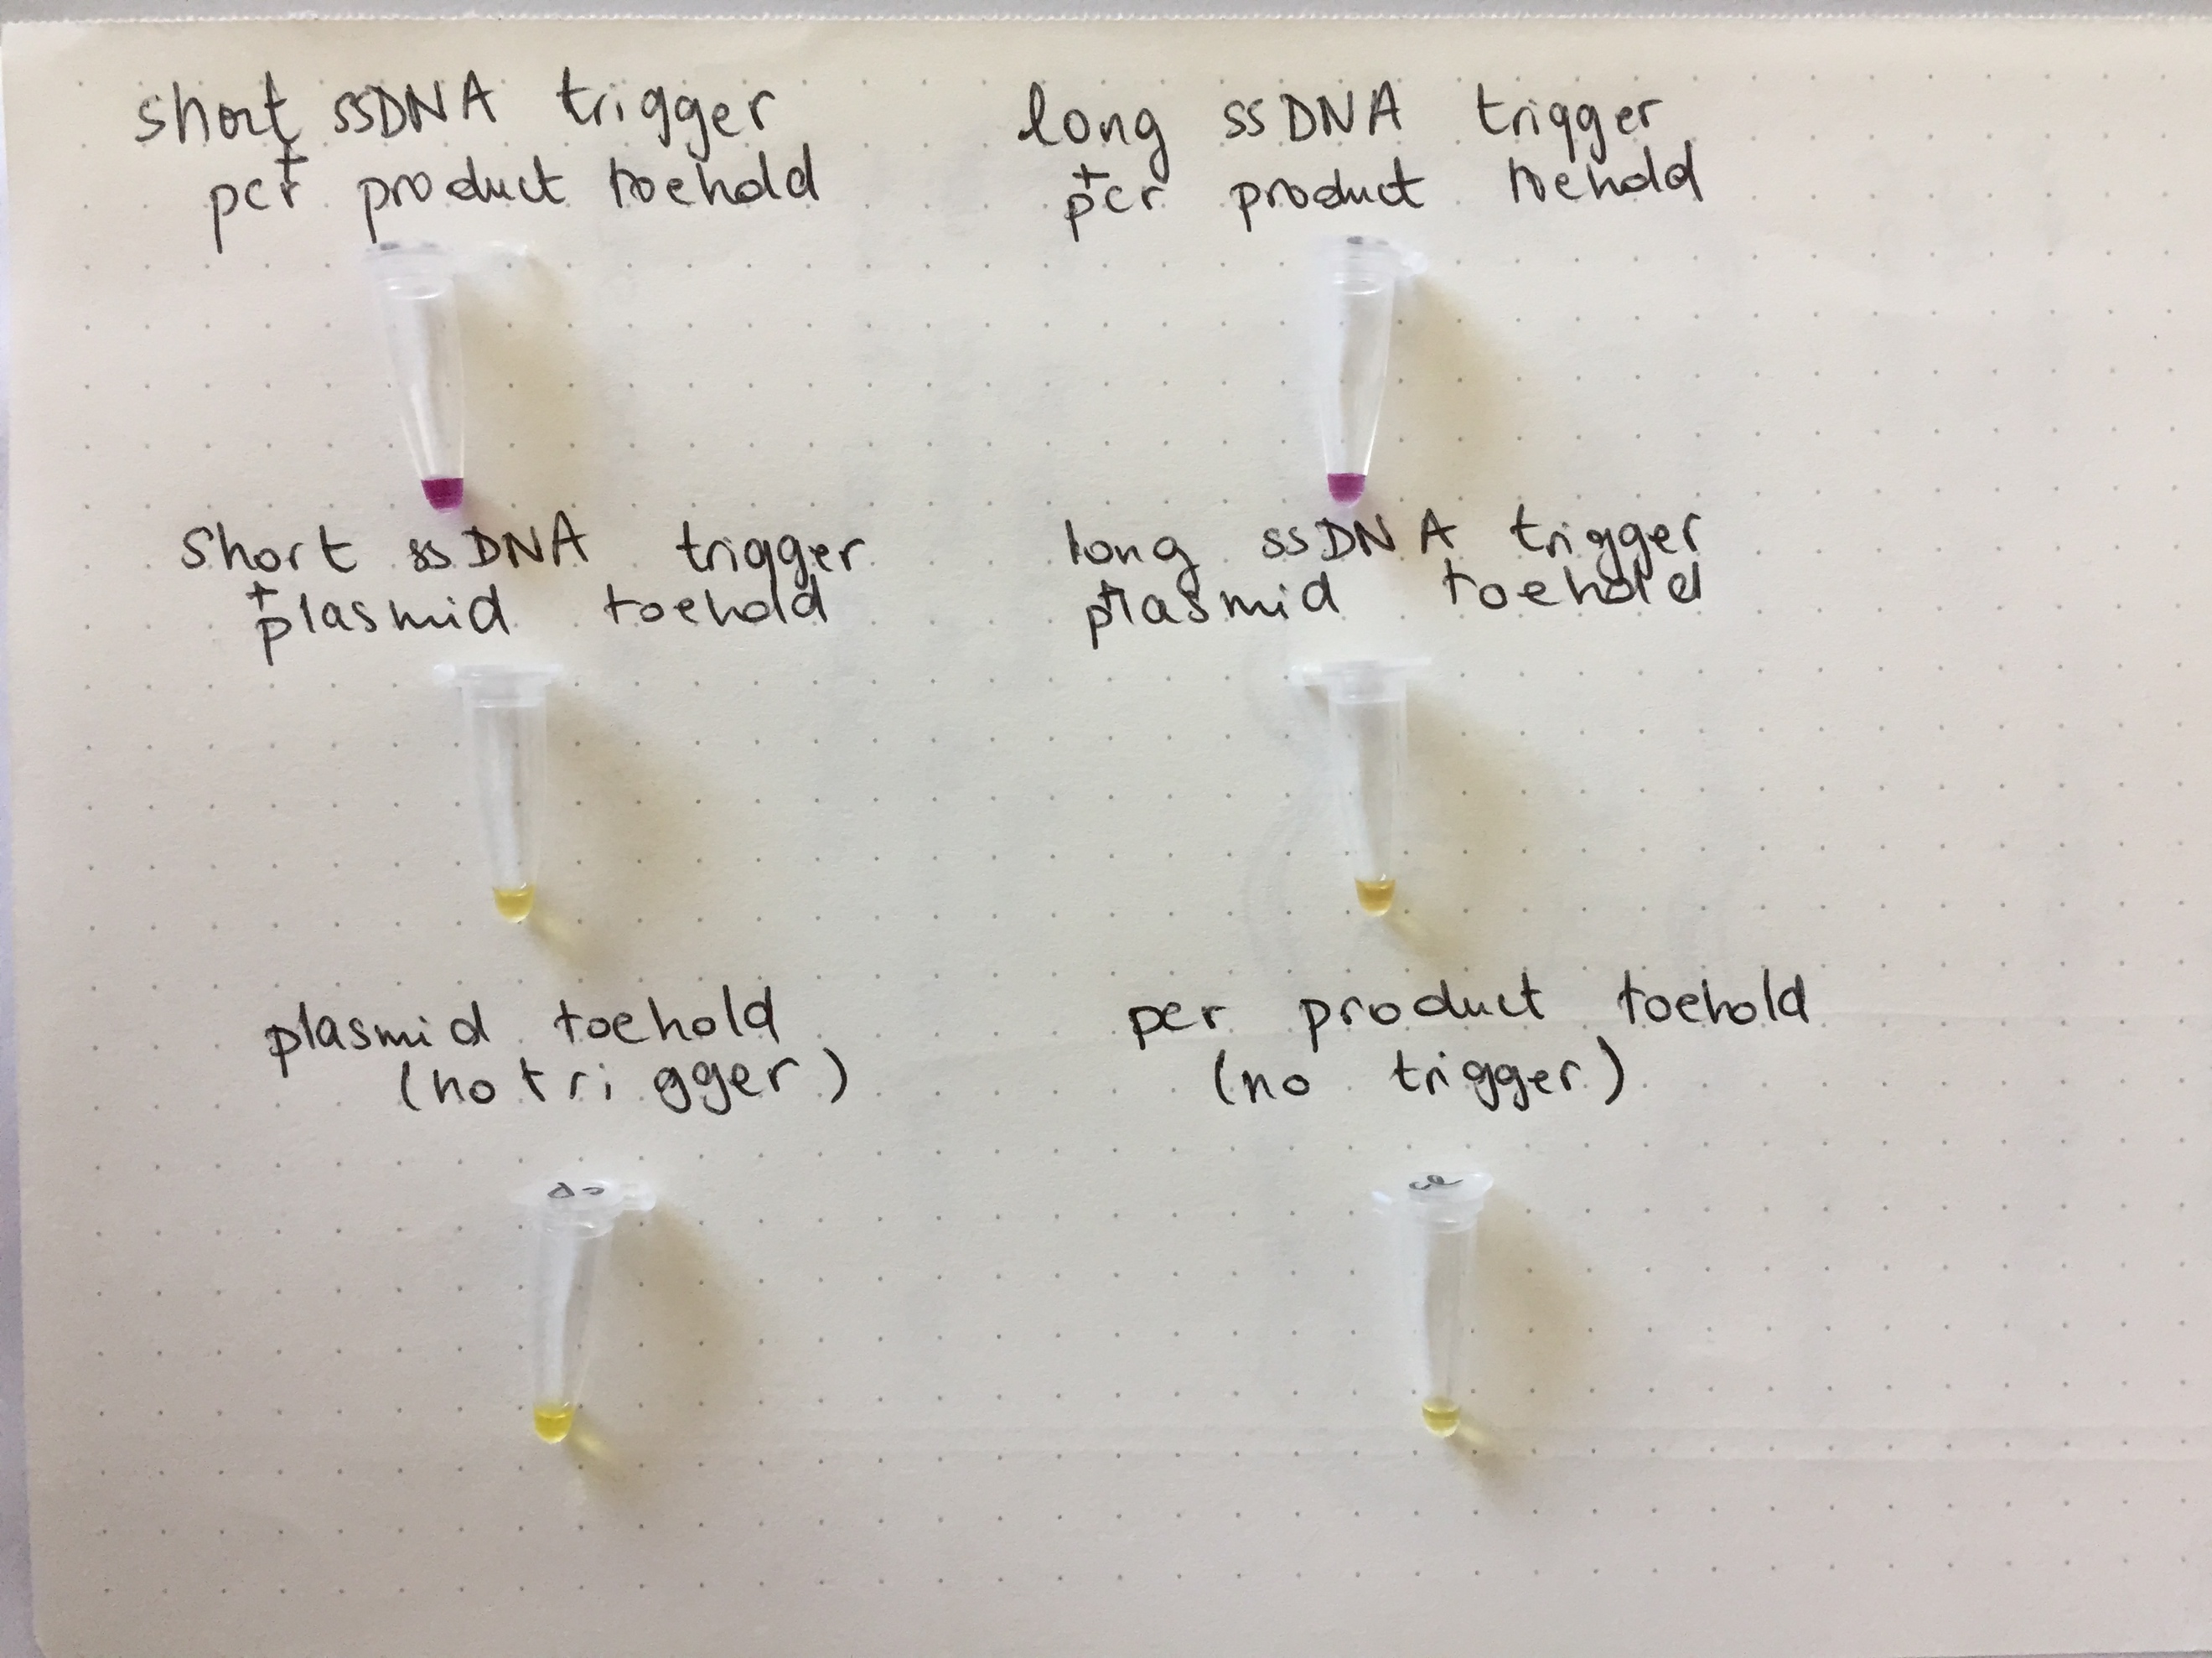 short ssDNA trigger
+
pcr product toehold
long ssDNA trigger
+
pcr product toehold
short ssDNA trigger
+
plasmid toehold
long ssDNA trigger
+
plasmid toehold
plasmid toehold
(no trigger)
pcr product toehold
(no trigger)